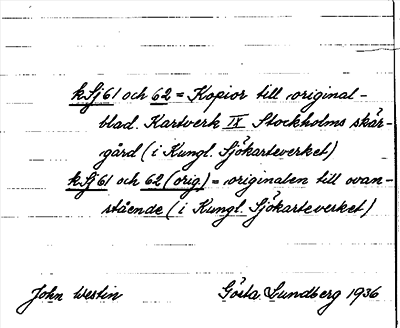 kSj 61 och 62 = Kopior till original-
blad. Kartverk IX Stockholms skär-
gård (i Kungl. Sjökarteverket)
kSj 61 och 62 (orig.) = originalen till ovan-
stående (i Kungl. Sjökarteverket)
John Westin Gösta Lundberg 1936